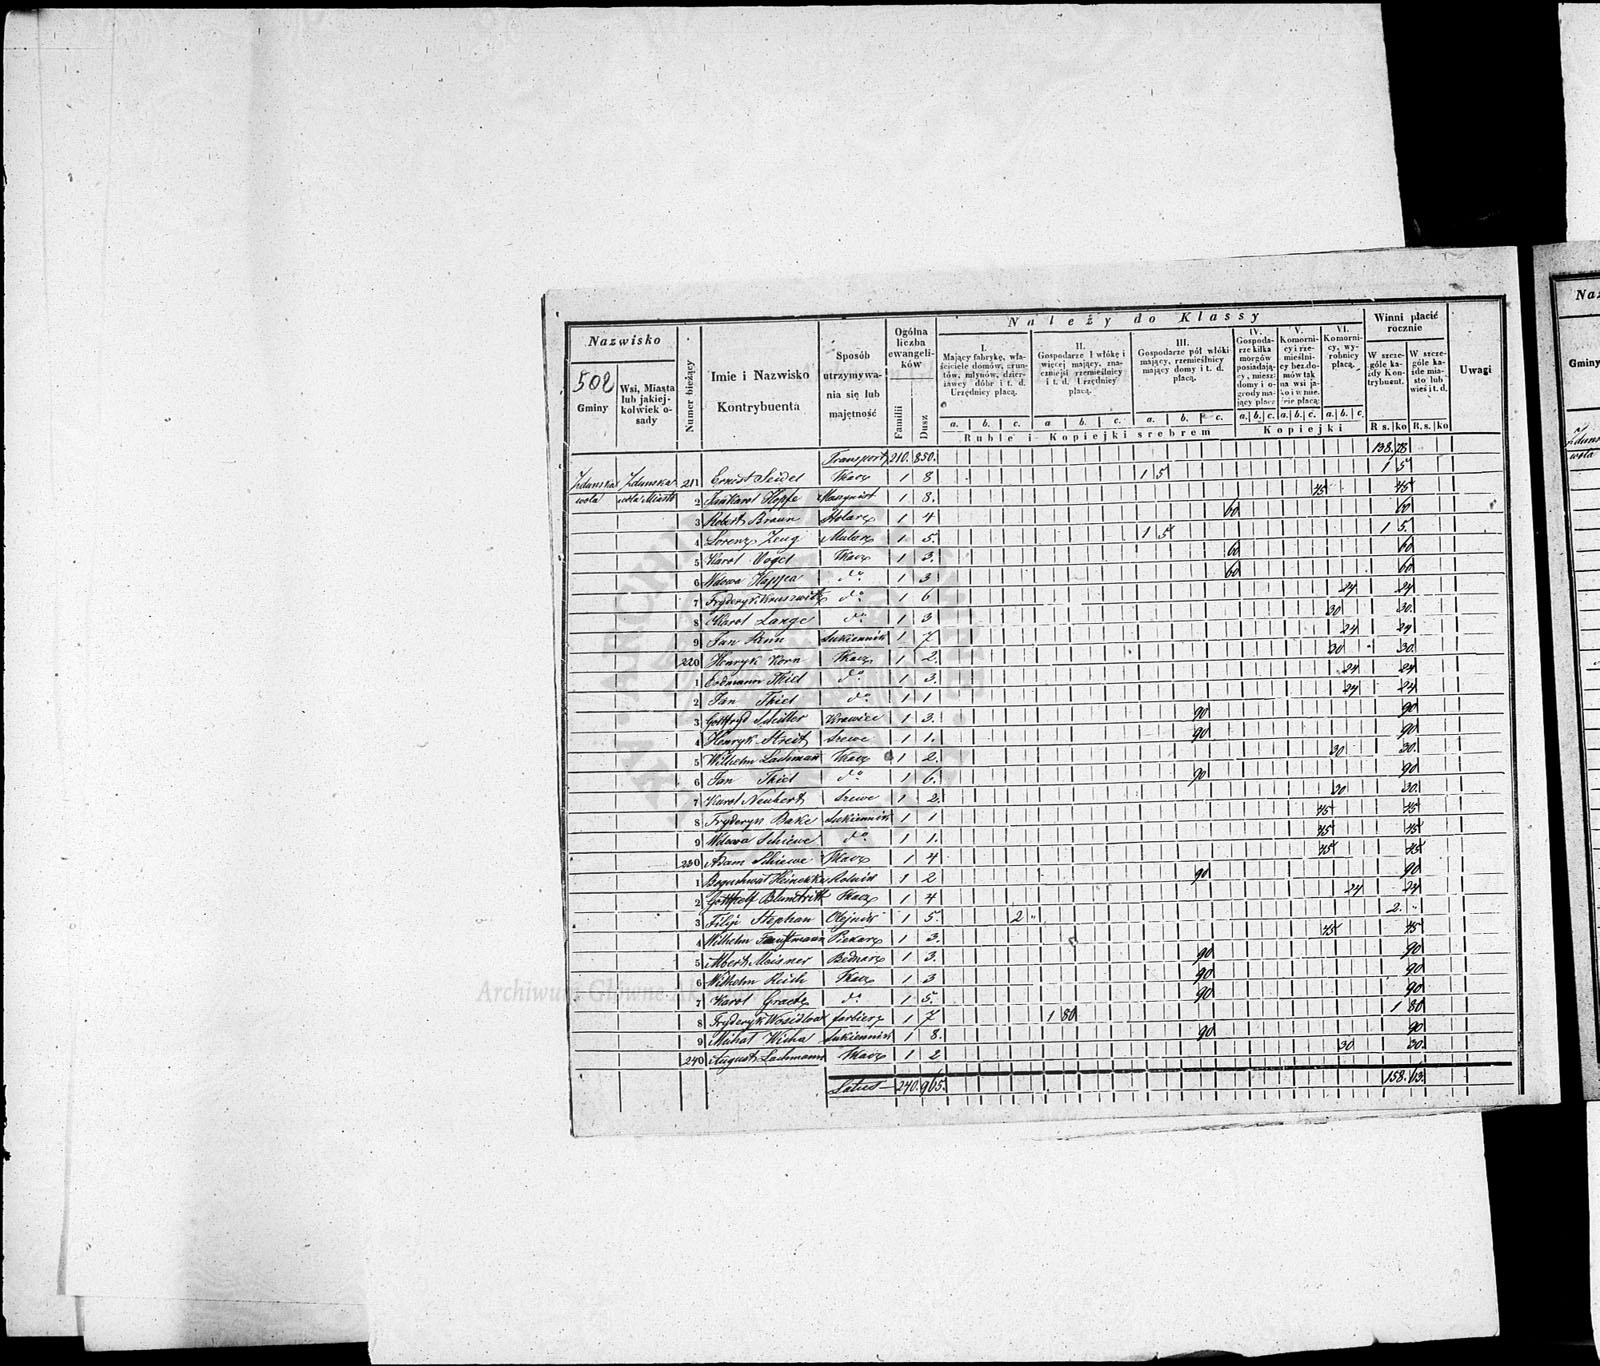 Nazwisko
502
Gminy
Wsi, Miasta lub jakiejkolwiek osady
Numer bieżący
Imie i Nazwisko Kontrybuenta
Sposób utrzymywania się lub majętność
Ogólna liczba ewangelików
Familii
Dusz
Należy do Klassy
I. Mający fabrykę, właściciele domów, gruntów, młynów, dzierżawcy dóbr i t. d. Urzędnicy płacą.
II. Gospodarze 1 włókę i więcej mający, znaczniejsi rzemieślnicy i t. d. Urzędnicy płacą.
III. Gospodarze pół włóki mający, rzemieślnicy mający domy i t. d. płacą.
IV. Gospodarze kilka morgów posiadający, mieszz domy i ogrody mający płacą
V. Komornicy i rzemieślnicy bez domów tak na wsi jako i w mieście płacą.
VI. Komornicy, wyrobnicy płacą.
a. b. c. a. b. c. a. b. c. a. b. c. a. b. c. a. b. c.
Ruble i Kopiejki srebrem
Kopiejki
Winni płacić rocznie
W szczególe każdy Kontrybuent.
W szczególe miasto lub wieś i t. d.
R s. ko R s. ko
Uwagi
Transport 210. 850. 138. 78
Zdunska wola Zdunska wola Miasto 211 Ernist Seidel Tkacz 1 8 1 5 1 5
2 Jan Karol Hopfe Maszynist 1 8. 45 45
3 Robert Braun Stolarz 1 4 60 60
4 Lorenz Zeug Mularz 1 5. 1 5 1 5.
5 Karol Vogel Tkacz 1 3. 60 60
6 Wdowa Kappea do 1 3 60 60
7 Fryderyk Kruszwitz do 1 6 24 24
8 Karol Lange do 1 3 30 30.
9 Jan Sukiennik 1 7 24 24
220 Henryk Korn Tkacz 1 2. 30 30.
1 Erdmann Thiel do 1 3. 24 24
2 Jan Thiel do 1 1 24 24
3 Gottfryd Schiller Krawiec 1 3. 90 90
4 Henryk Streit Szewc 1 1. 90 90
5 Wilhelm Lachman Tkacz 1 2. 30 30.
6 Jan Thiel do 1 6. 90 90
7 Karol Neubert Szewc 1 2. 30 30.
8 Fryderyk Bake Sukiennik 1 1 45 45
9 Wdowa Schiewe do 1 1. 45 45
230 Adam Schiewe Tkacz 1 4 45 45
1 Rolnik 1 2 90 90
2 Tkacz 1 4 24 24
3 Filip Stephan Olejnik 1 5 2 " 2. "
4 Wilhelm Piekarz 1 3. 45 45
5 Albert Meisner Bednarz 1 3. 90 90
6 Wilhelm Reich Tkacz 1 3 90 90
7 Karol Graetz do 1 5. 90 90
8 Fryderyk farbierz 1 7 1 80 1 80
9 Michał Wicha Sukiennik 1 8. 90 90
240 August Lachmann Tkacz 1 2 30 30.
Latus — 240. 965. 158. 63.
Archiwum Główne Ak